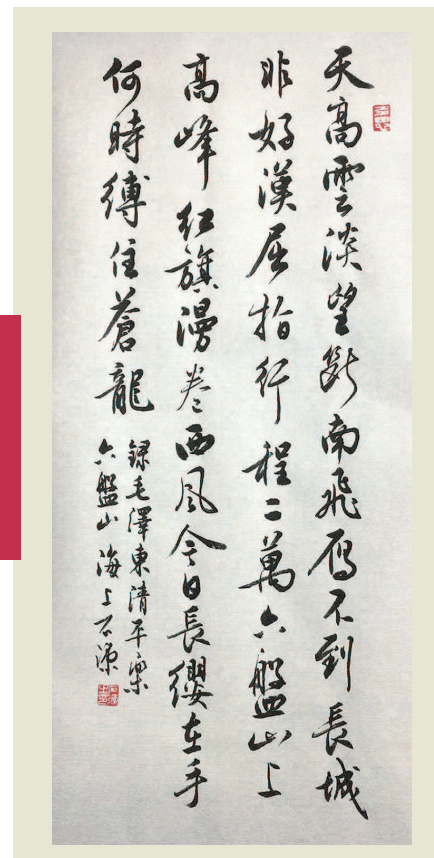 天高雲淡望斷南飛雁不到長城
非好漢屈指行程二萬六盤山上
高峰紅旗漫卷西風今日長纓在手
何時縛住蒼龍
錄毛澤東清平樂
六盤山 海上石源